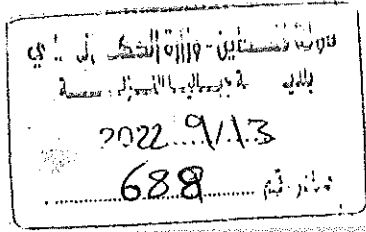 دولة فلسطين - وزارة الحكم المحلي
بلدية جباليا النزلة
2022 9/13
صادر رقم 688